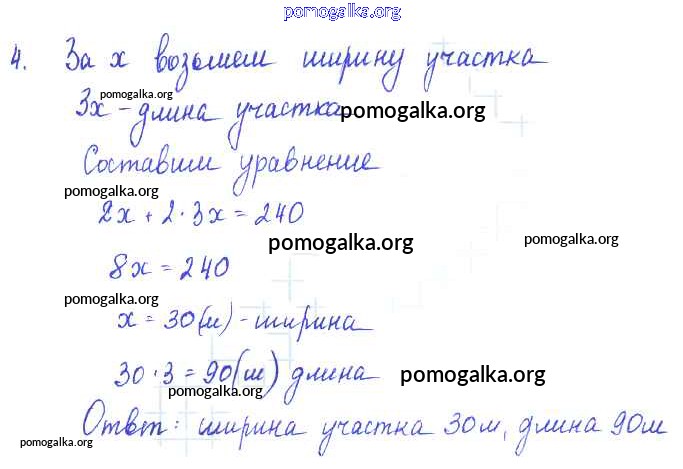 pomogalka.org
4. За x возьмем ширину участка
pomogalka.org
3x - длина участка pomogalka.org
Составим уравнение
pomogalka.org
2x + 2·3x = 240
pomogalka.org pomogalka.org
8x = 240
pomogalka.org
x = 30(м) - ширина
30·3 = 90(м) длина pomogalka.org
pomogalka.org
Ответ: ширина участка 30м, длина 90м
pomogalka.org